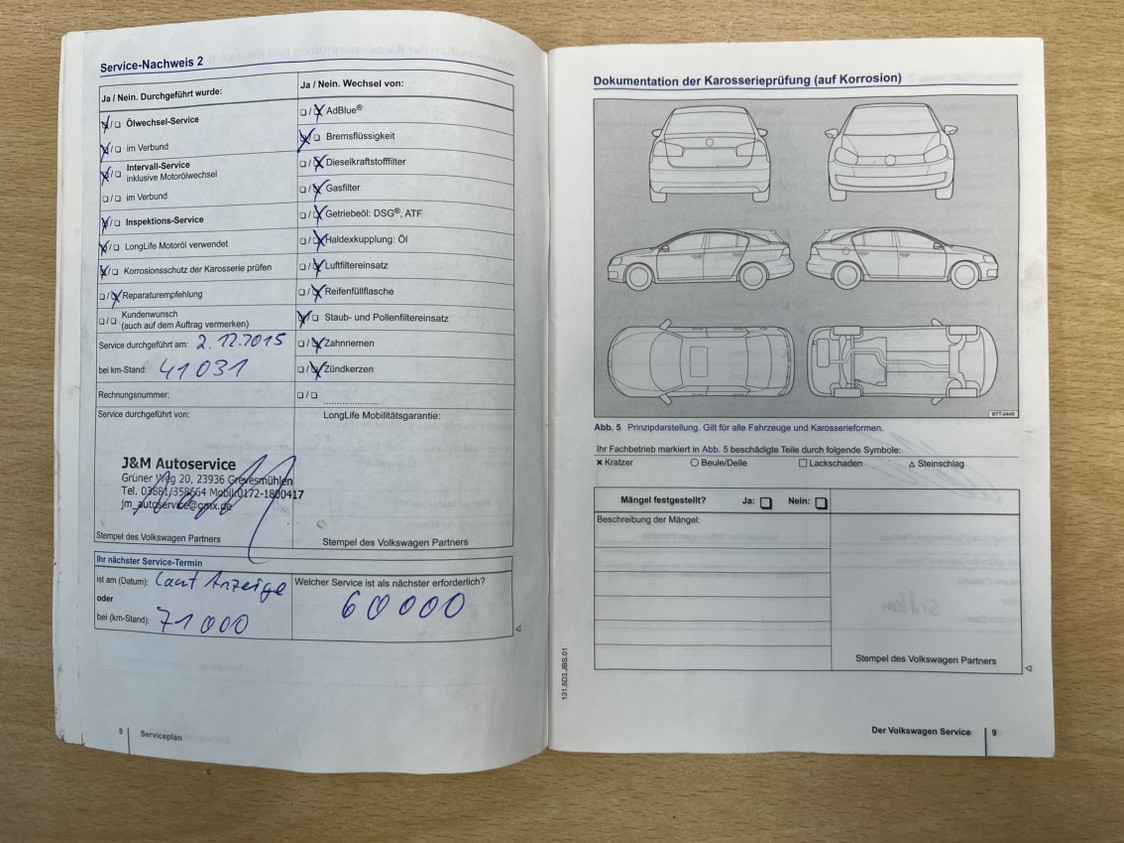 Service-Nachweis 2
Ja / Nein. Durchgeführt wurde:
Ölwechsel-Service
im Verbund
Intervall-Service
inklusive Motorölwechsel
im Verbund
Inspektions-Service
LongLife Motoröl verwendet
Korrosionsschutz der Karosserie prüfen
Reparaturempfehlung
Kundenwunsch
(auch auf dem Auftrag vermerken)
Service durchgeführt am: 2.12.2015
bei km-Stand: 41031
Rechnungsnummer:
Service durchgeführt von:
J&M Autoservice
Grüner Weg 20, 23936 Grevesmühlen
Tel. 03881/358664 Mobil:0172-1800417
jm_autoservice@gmx.de
Stempel des Volkswagen Partners
Ja / Nein. Wechsel von:
AdBlue®
Bremsflüssigkeit
Dieselkraftstofffilter
Gasfilter
Getriebeöl: DSG®, ATF
Haldexkupplung: Öl
Luftfiltereinsatz
Reifenfüllflasche
Staub- und Pollenfiltereinsatz
Zahnriemen
Zündkerzen
LongLife Mobilitätsgarantie:
Stempel des Volkswagen Partners
Ihr nächster Service-Termin
ist am (Datum): laut Anzeige
oder
bei (km-Stand): 71000
Welcher Service ist als nächster erforderlich?
60000
Serviceplan
Dokumentation der Karosserieprüfung (auf Korrosion)
Abb. 5 Prinzipdarstellung. Gilt für alle Fahrzeuge und Karosserieformen.
Ihr Fachbetrieb markiert in Abb. 5 beschädigte Teile durch folgende Symbole:
Kratzer Beule/Delle Lackschaden Steinschlag
Mängel festgestellt? Ja: Nein:
Beschreibung der Mängel:
Stempel des Volkswagen Partners
131.5D3.JBS.01
Der Volkswagen Service 9